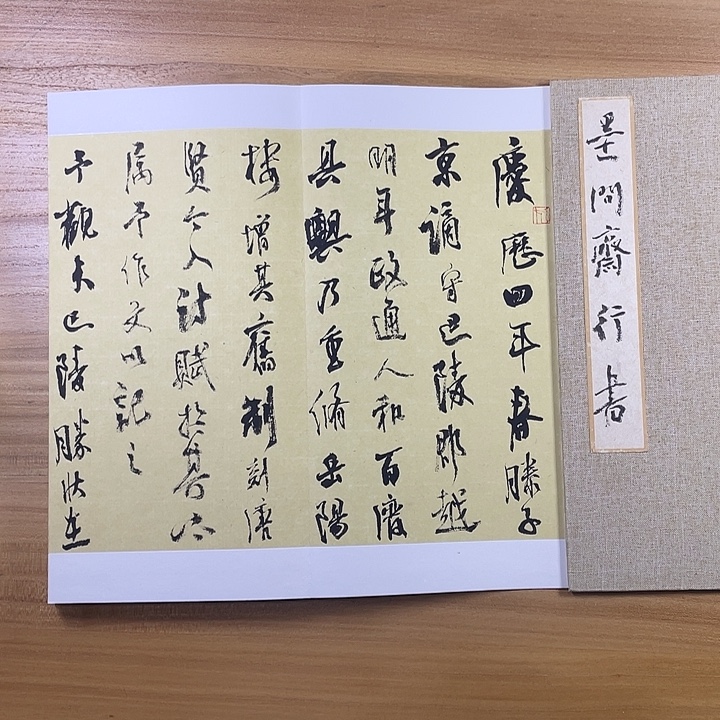 墨問齋行書
慶歷四年春滕子
京謫守巴陵郡越
明年政通人和百廢
具興乃重脩岳陽
樓增其舊制刻唐
賢今人詩賦於其上
屬予作文以記之
予觀夫巴陵勝狀在